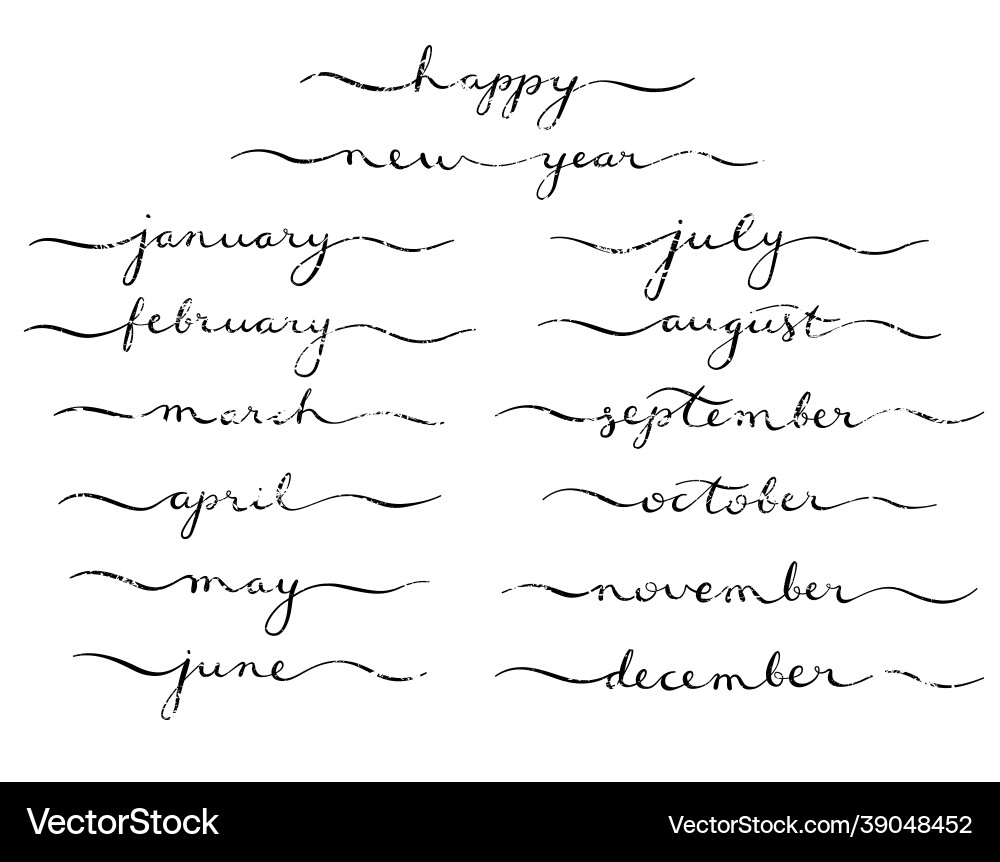 happy
new year
january
february
march
april
may
june
july
august
september
october
november
december
VectorStock
VectorStock.com/39048452